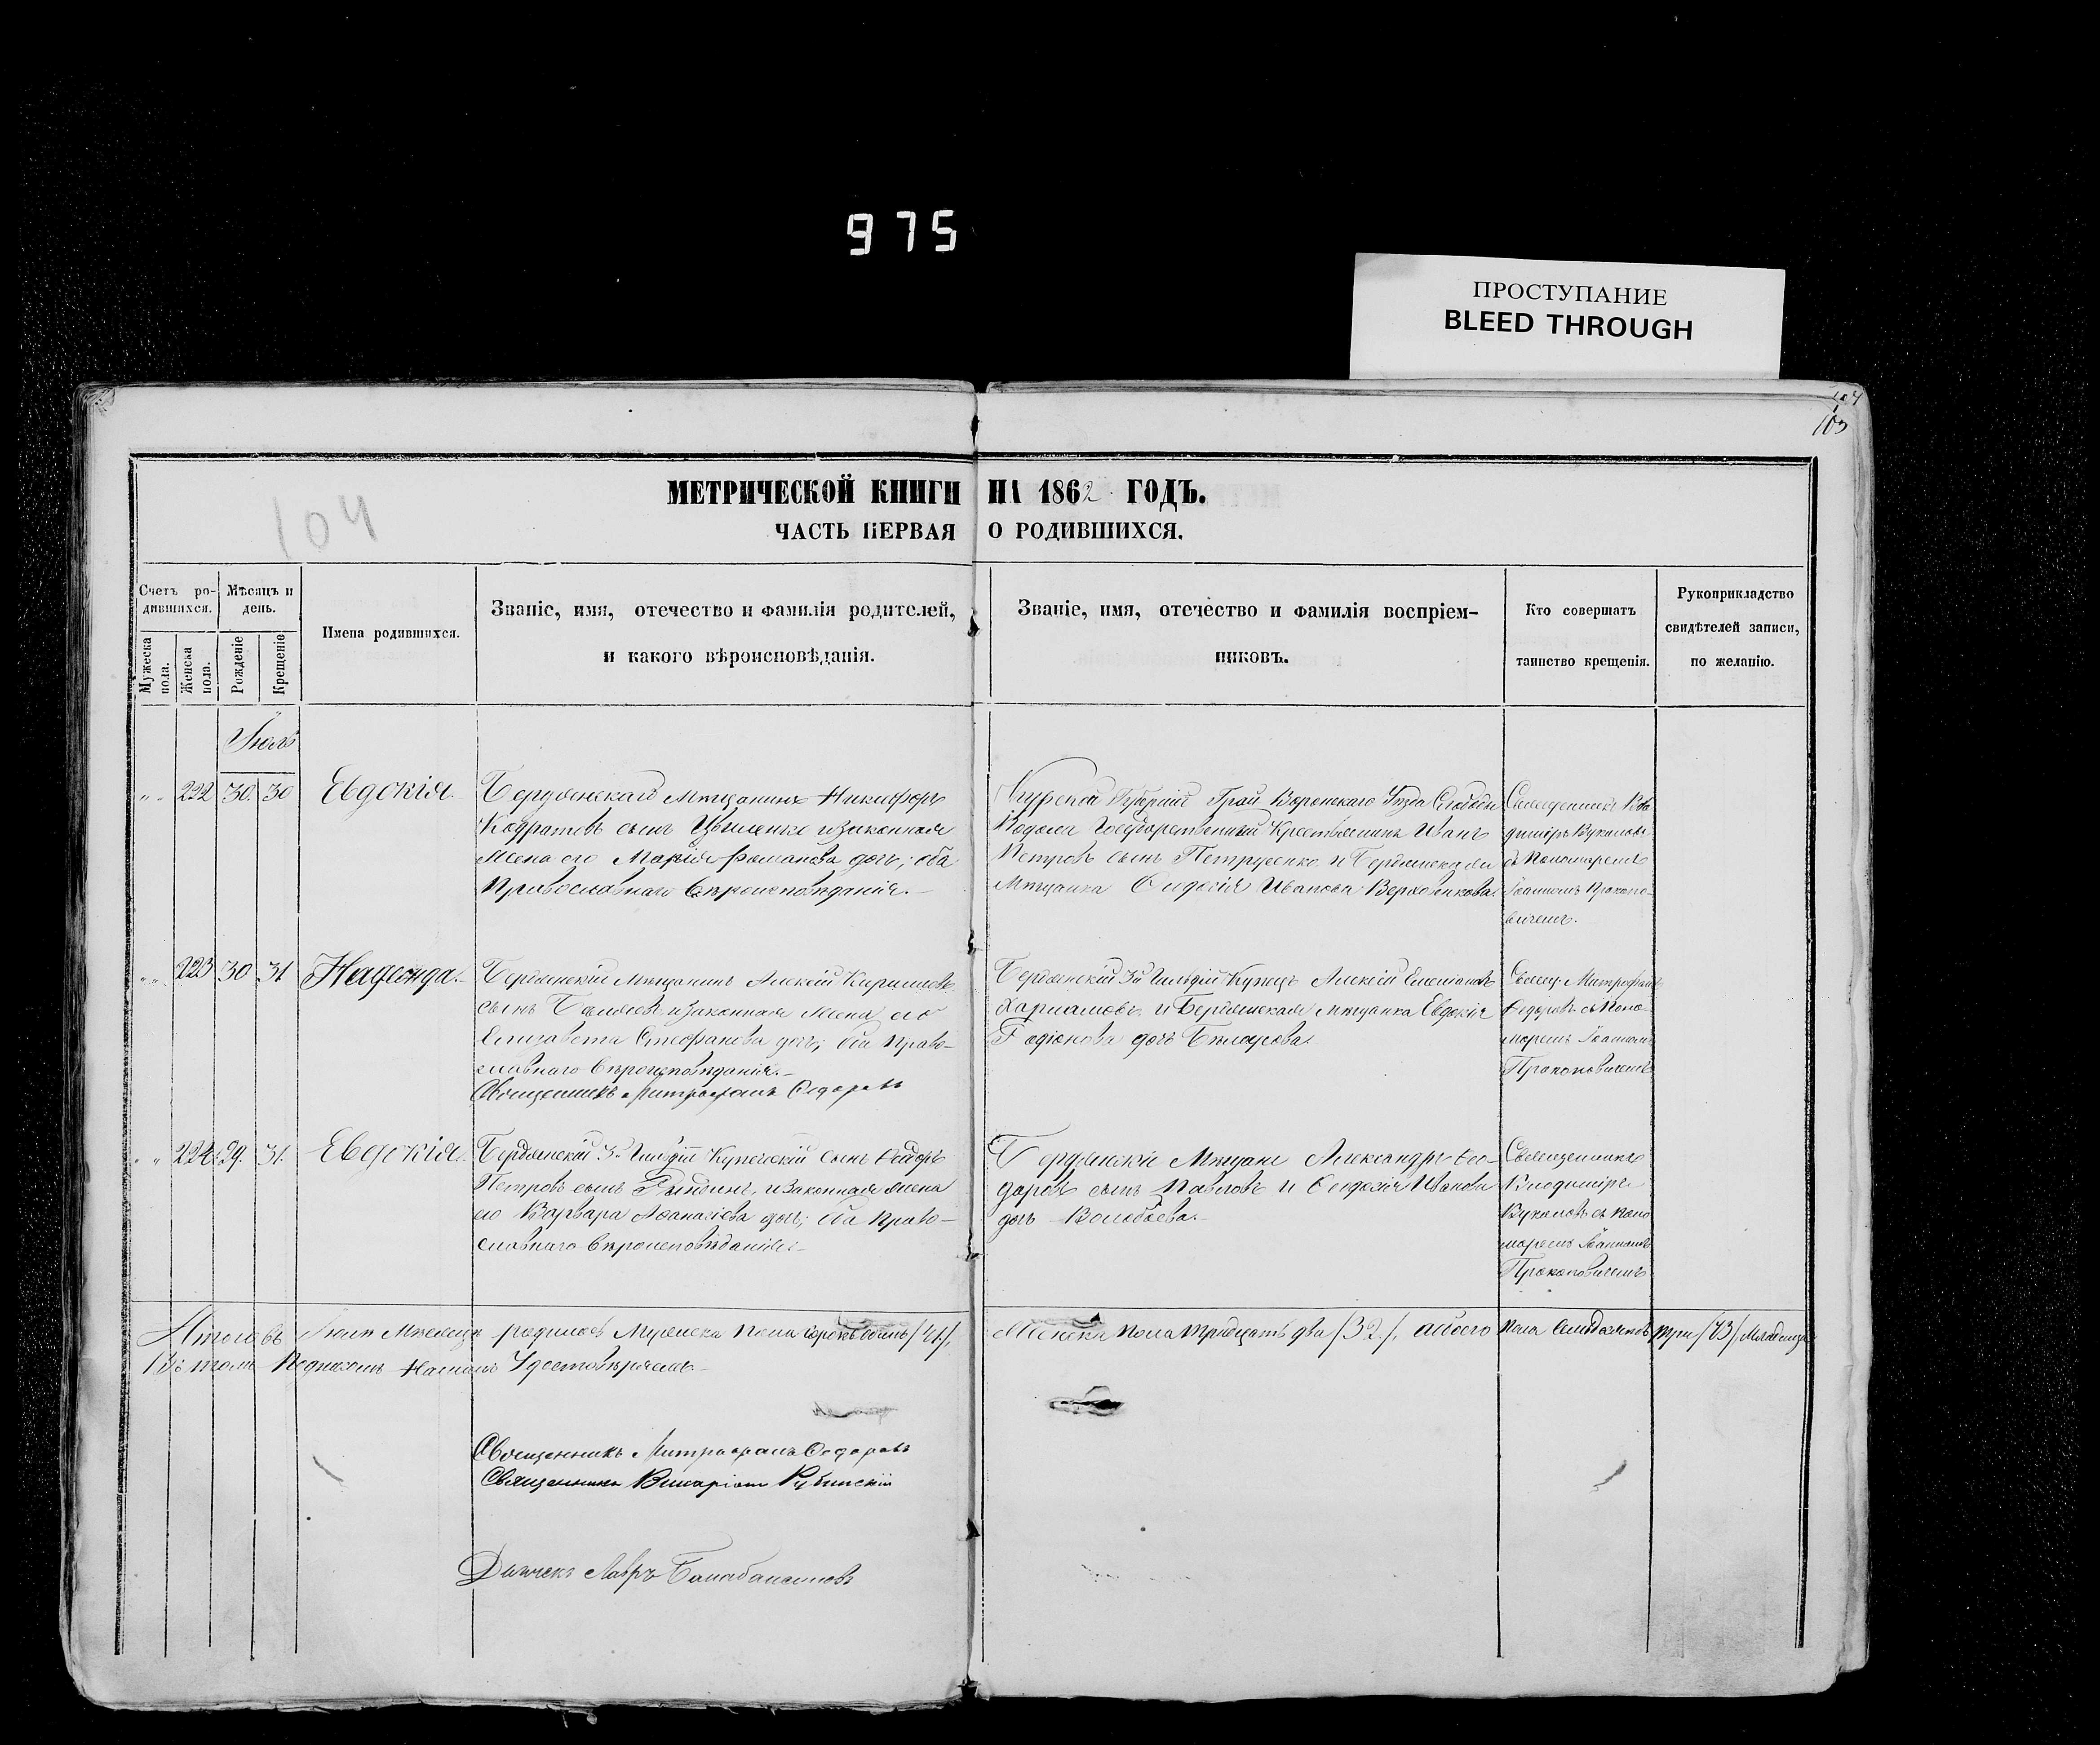 975
ПРОСТУПАНИЕ
BLEED THROUGH
104
103
104
МЕТРИЧЕСКОЙ КНИГИ НА 1862 ГОДЪ.
ЧАСТЬ ПЕРВАЯ О РОДИВШИХСЯ.
Счетъ ро-
дившихся.
Мужеска
пола.
Женска
пола.
Мѣсяцъ и
день.
Рожденіе
Крещеніе
Имена родившихся.
Званіе, имя, отечество и фамилія родителей,
и какого вѣроисповѣданія.
Званіе, имя, отечество и фамилія воспріем-
никовъ.
Кто совершатъ
таинство крещенія.
Рукоприкладство
свидѣтелей записи,
по желанію.
Іюль
" " 222 30. 30 Евдокія.
Бердянскій Мѣщанинъ Никифоръ
Кодратовъ сынъ и законная
Жена его Марія Романова дочь; оба
Православнаго Вѣроисповѣданія.-
Курской Губерніи Грай Воронскаго Уѣзда Слободы
Государственный Крестьянинъ Иванъ
Петровъ сынъ Петрусенко и Бердянская
Мѣщанка Ѳеодосія Иванова
Священникъ Вла
димиръ Вукаловъ
съ Пономаремъ
Іоанномъ Прокопо-
вичемъ.
" " 223 30 31 Надежда.
Бердянскій Мѣщанинъ Алексій Кириловъ
сынъ и законная Жена его
Елизавета Стефанова дочь; оба Право-
славнаго Вѣроисповѣданія.-
Священникъ Митрофанъ Ѳедоровъ
Бердянскій 3й Гильдіи Купецъ Алексій Емеліановъ
Харламовъ и Бердянская мѣщанка Евдокія
Родіонова дочь Бѣлоусова
Свящ. Митрофанъ
Ѳедоровъ съ Поно-
маремъ Іоанномъ
Прокоповичемъ
" " 224 29. 31. Евдокія.
Бердянскій 3й Гильдіи Купеческій сынъ
Петровъ сынъ Рындинъ, и законная жена
его Варвара Аѳанасіева дочь; оба Право-
славнаго Вѣроисповѣданія-
Бердянскіе Мѣщане Александръ Ѳео-
доровъ сынъ Павловъ и Ѳеодосія Иванова
дочь
Священникъ
Владимиръ
Вукаловъ съ Поно
маремъ Іоанномъ
Прокоповичемъ
Итого въ Іюлѣ Мѣсяцѣ родилось Мужеска Пола сорокъ одинъ /41/, Женска Пола тридцать два /32/, а обоего Пола Семдесятъ три /73/ Младенца
Въ томъ Подписомъ Нашимъ Удостовѣряемъ.-
Священникъ Митрофанъ Ѳедоровъ
Священникъ
Дьячекъ Лавръ